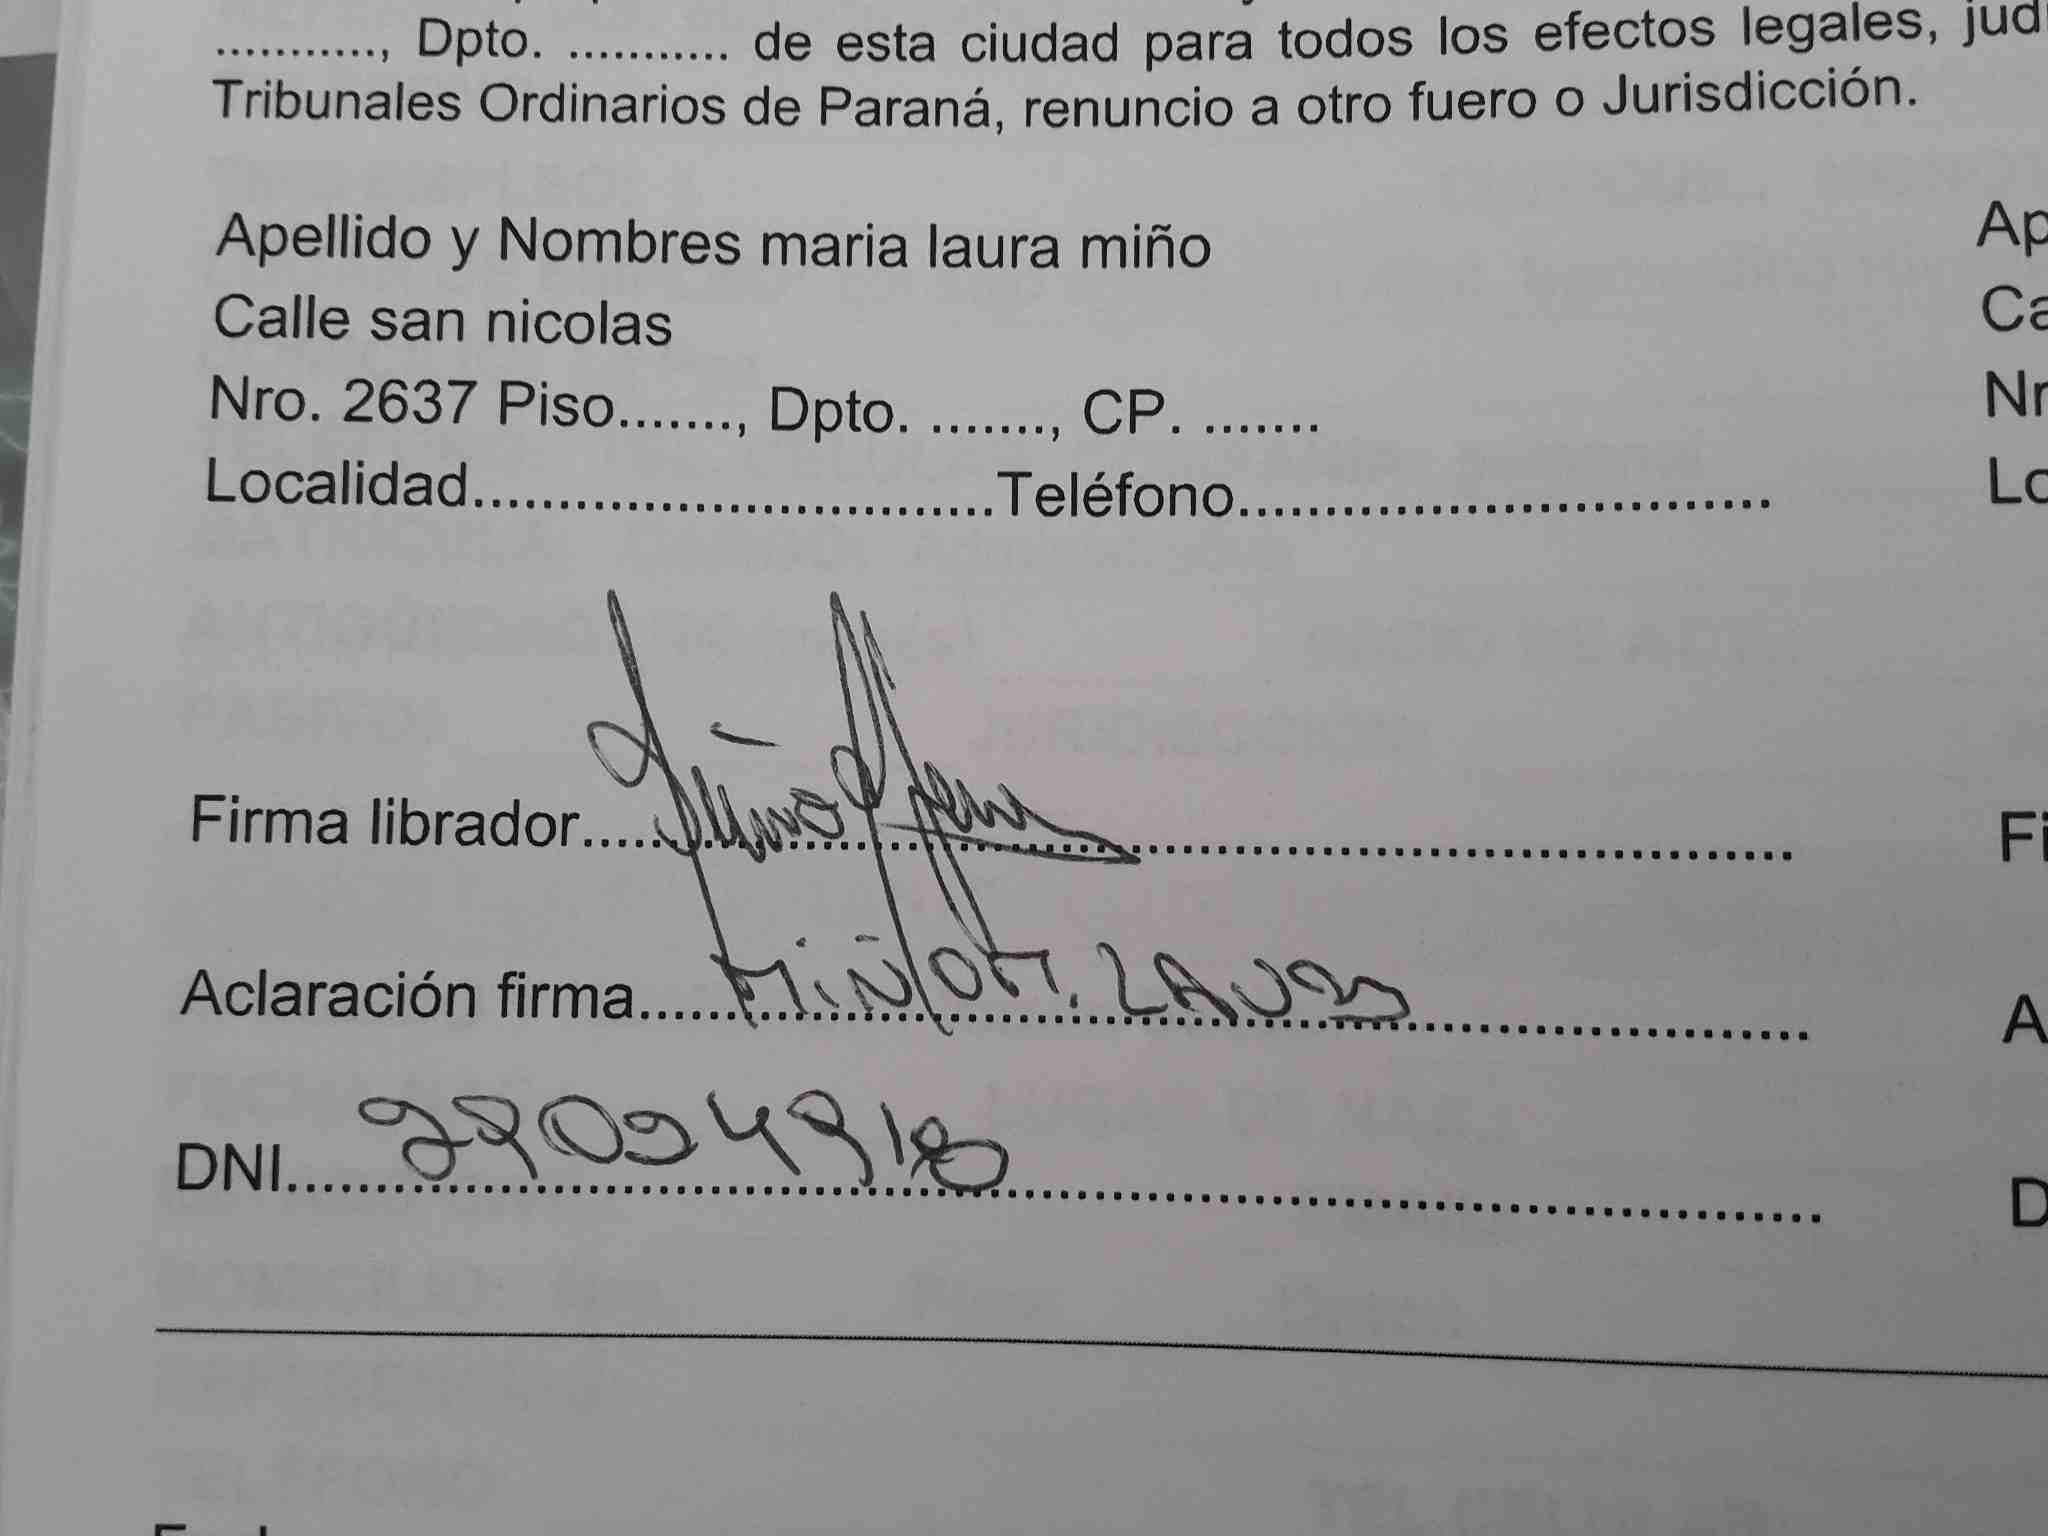 ..........., Dpto. ........... de esta ciudad para todos los efectos legales, jud
Tribunales Ordinarios de Paraná, renuncio a otro fuero o Jurisdicción.
Apellido y Nombres maria laura miño
Ap
Calle san nicolas
Ca
Nro. 2637 Piso......., Dpto. ......., CP. .......
Nr
Localidad..............................Teléfono...............................
Lo
Firma librador..........
Fi
Aclaración firma.....MIÑO M. LAURA
A
DNI
D